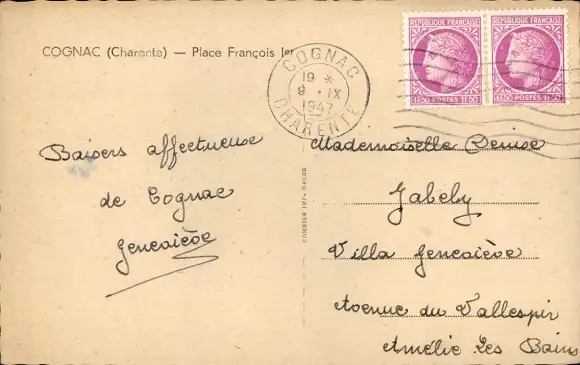 COGNAC (Charente) — Place François Ier
COGNAC
19 *
9 · IX
1947
CHARENTE
REPUBLIQUE FRANÇAISE
1F50 POSTES 1F50
REPUBLIQUE FRANÇAISE
1F50 POSTES 1F50
Baisers affectueuse
de Cognac
Geneviève
COMBIER IMP. MACON
Mademoiselle Denise
Jabely
Villa Geneviève
Avenue du Vallespir
Amélie Les Bains